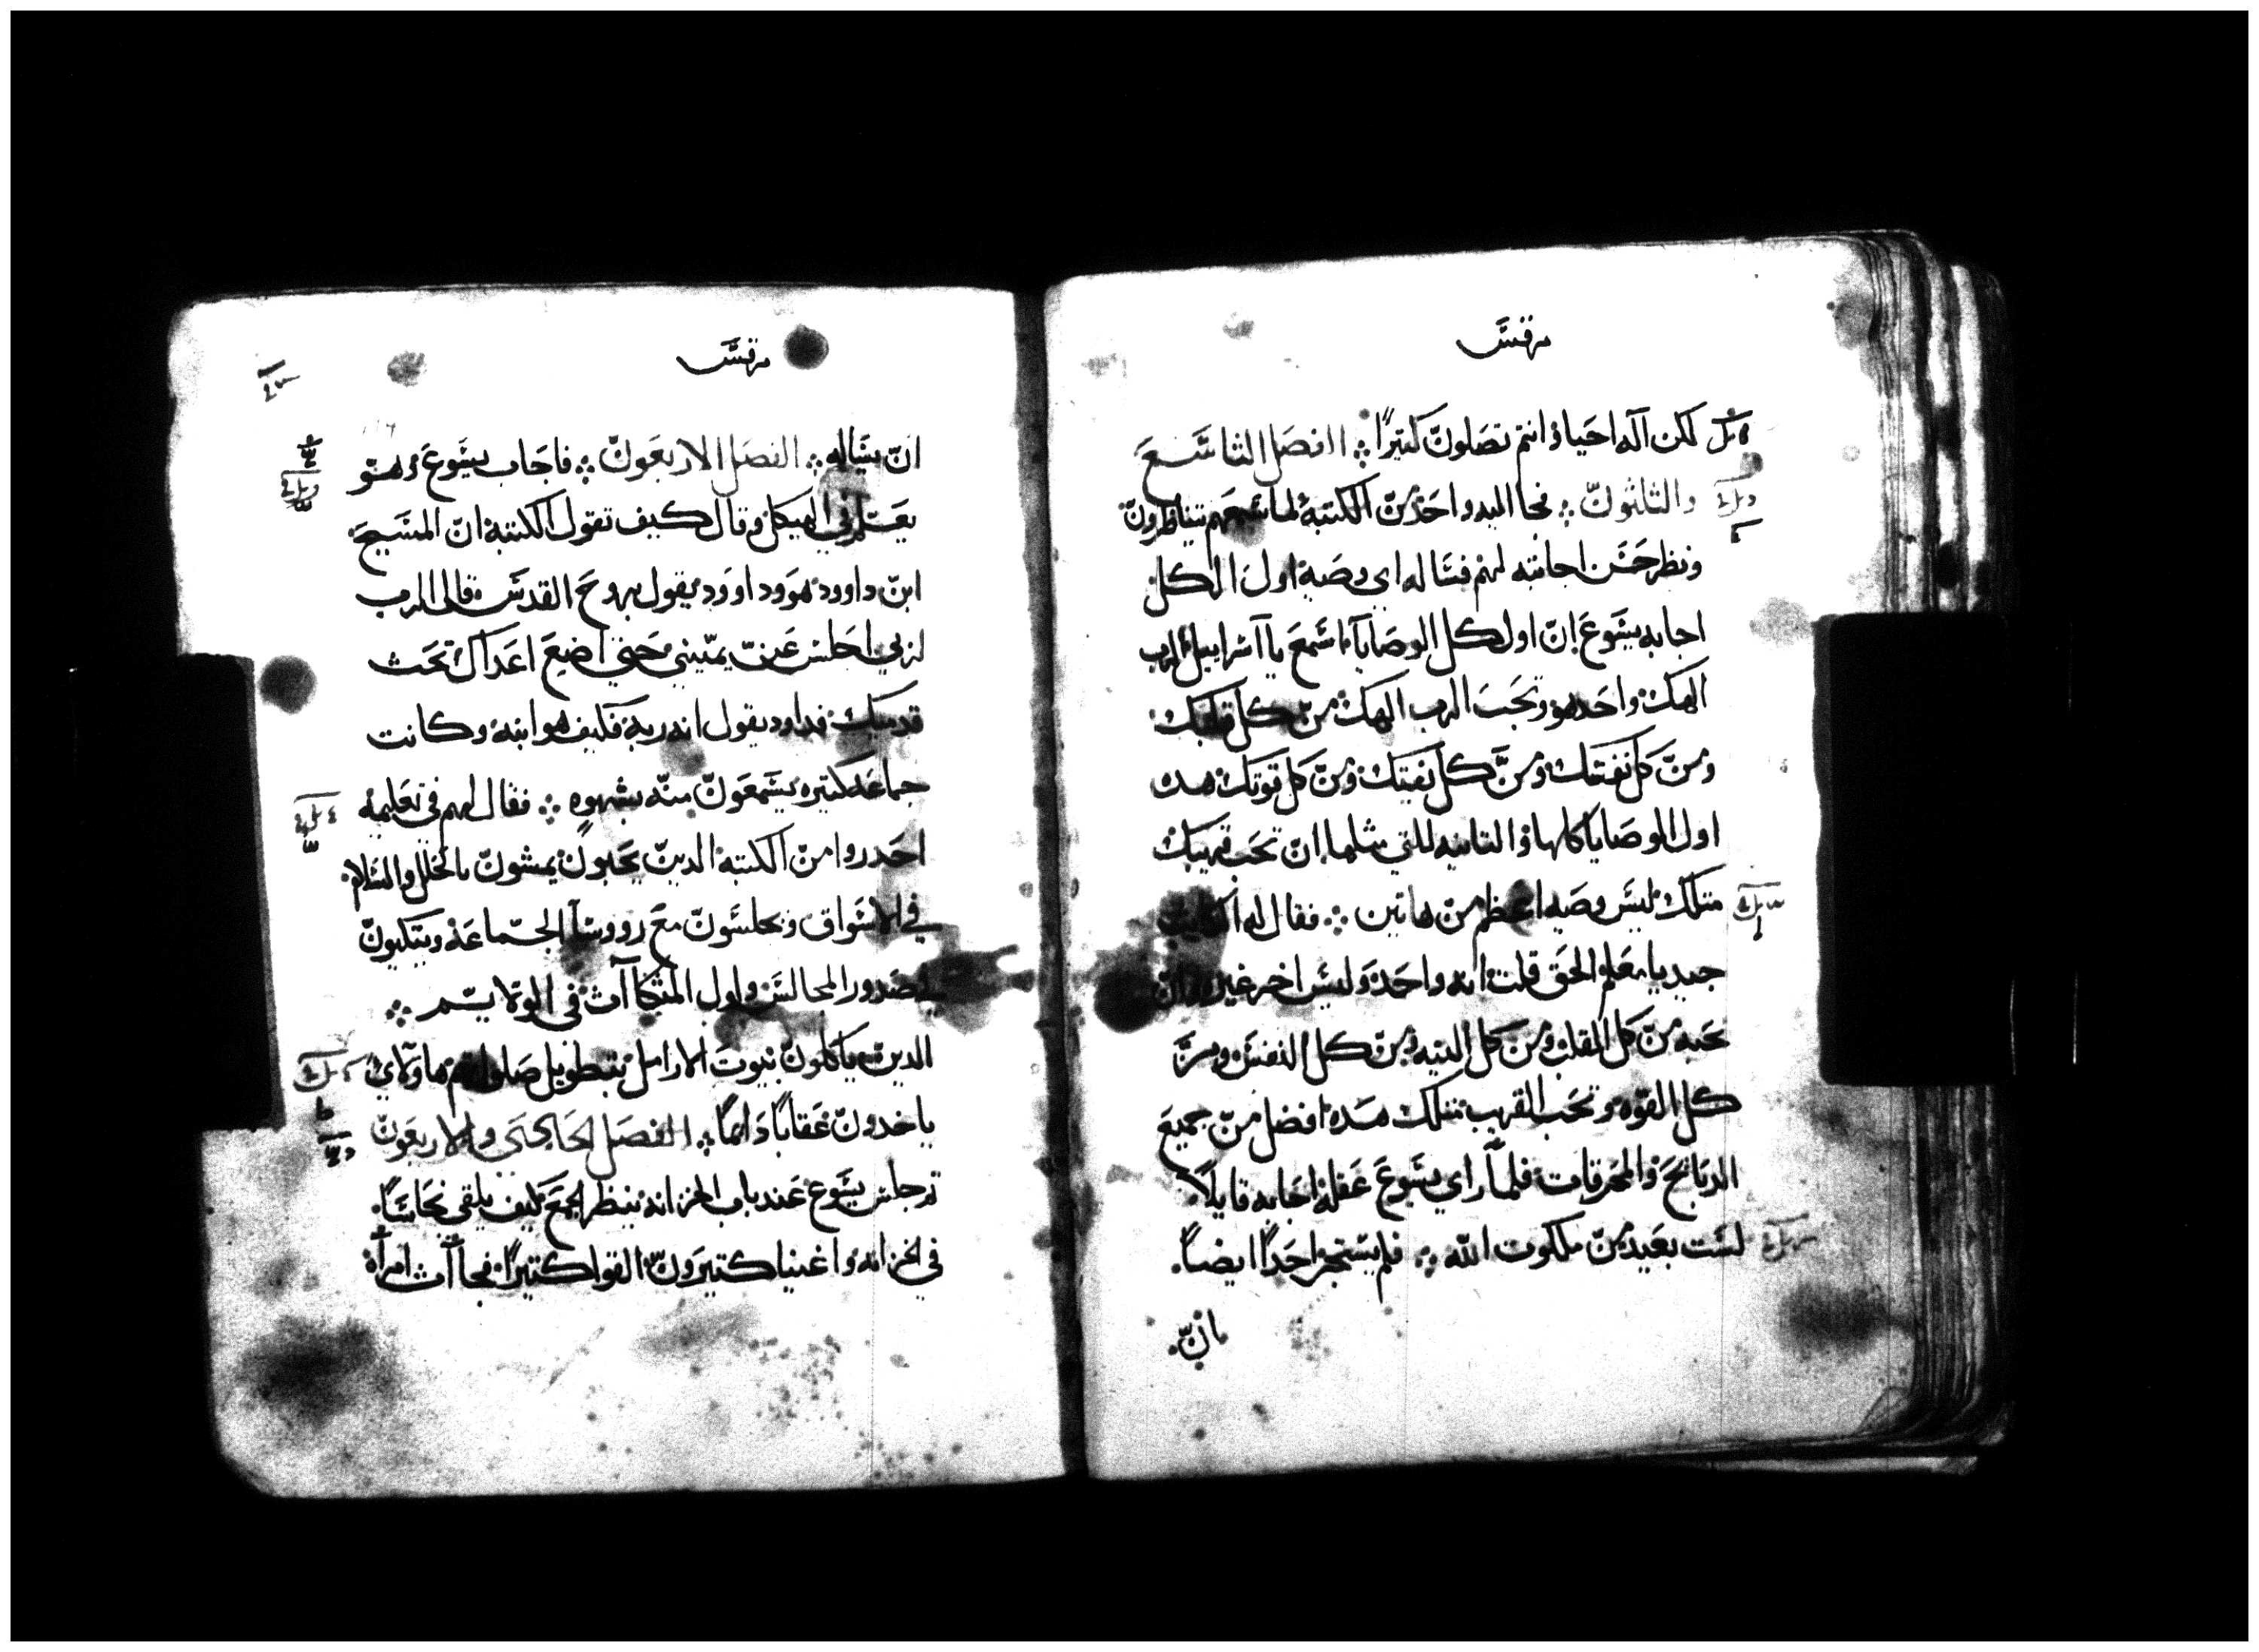 مرقس
لكن اله احيا وانتم تضلون كثيرًا ܀ الفصل التاسع
والثلثون ܀ فجا اليه واحد من الكتبة لما سمعهم يتناظرون
ونظر حسن اجابته لهم فساله اي وصية اول الكل
اجابه يشوع ان اول كل الوصايا اسمع يا اسراييل الرب
الهك واحد هو وتحب الرب الهك من كل قلبك
ومن كل نفسك ومن كل نيتك ومن كل قوتك هده
اول الوصايا كلها والتانيه التي مثلها ان تحب قريبك
مثلك ليس وصيه اعظم من هاتين ܀ فقال له الكاتب
جيد يا معلم الحق قلت انه واحد وليس اخر غيره وان
تحبه من كل القلب ومن كل النيه ومن كل النفس ومن
كل القوه وتحب القريب مثلك هده افضل من جميع
الدبايح والمحرقات فلما راي يشوع عقله اجابه قايلاً
لست بعيد من ملكوت الله ܀ فلم يستجر احدًا ايضاً
ان
مرقس
ان يساله ܀ الفصل الاربعون ܀ فاجاب يشوع وهو
يعلم في الهيكل وقال كيف تقول الكتبة ان المسيح
ابن داوود هو وداوود يقول بروح القدس قال الرب
لربي اجلس عن يميني حتي اضع اعداك تحت
قدميك فداود يقول انه ربه فكيف هو ابنه وكانت
جماعه كتيره يسمعون منه بشهوه ܀ فقال لهم في تعليمه
احدروا من الكتبة الدين يحبون يمشون بالحلل والسلام
في الاسواق ويجلسون مع رووسا الجماعة ويتكيون
في صدور المجالس واول المتكاآت في الولايم ܀
الدين ياكلون بيوت الارامل بتطويل صلواتهم هاولاي
ياخدون عقاباً دايماً ܀ الفصل الحادي والاربعون
ثم جلس يشوع عند باب الخزانه ينظر الجمع كيف يلقي نحاساً
في الخزانه واغنيا كتيرون القوا كتيرًا فجاآت امراة